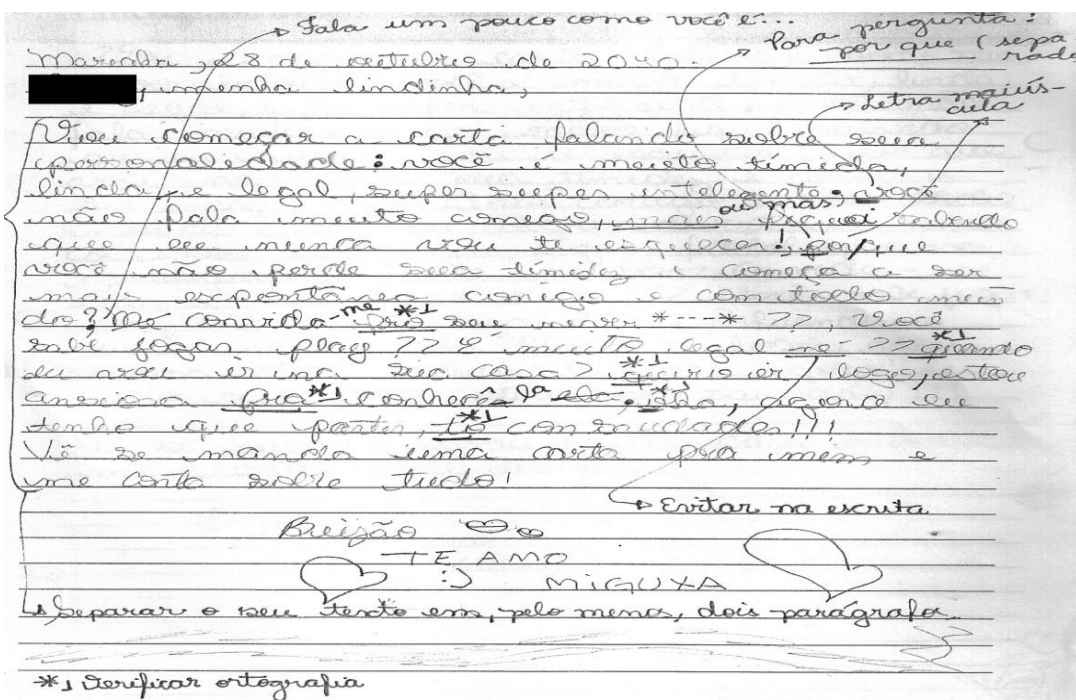 Fala um pouco como você é...
Para pergunta:
por que (sepa
rado
28 de outubro de
, minha lindinha,
Letra maiús-
cula
Vou começar a carta falando sobre sua
personalidade: você é muito tímida,
linda, e legal, super super intelegente; você
ou mas,
não fala muito comigo, mais sabendo
que eu nunca vou te esquecer! porque
você não perde sua timidez e começa a ser
mais espontânea comigo e com todo mun
do? convida-me pro seu *1 *---* ??, Você
sabe jogar play ?? é muito legal né ?? quando *1
eu vou ir na sua casa? quero ir logo, estou *1
anciosa pra *1 conhecê-la ela, , agora eu *1
tenho que partir, tô *1 com saudades!!!
Vê se manda uma carta pra mim e
me conta sobre tudo!
Evitar na escrita
Beijão
TE AMO
:)
MIGUXA
Separar o seu texto em, pelo menos, dois parágrafo
*1 Verificar ortografia